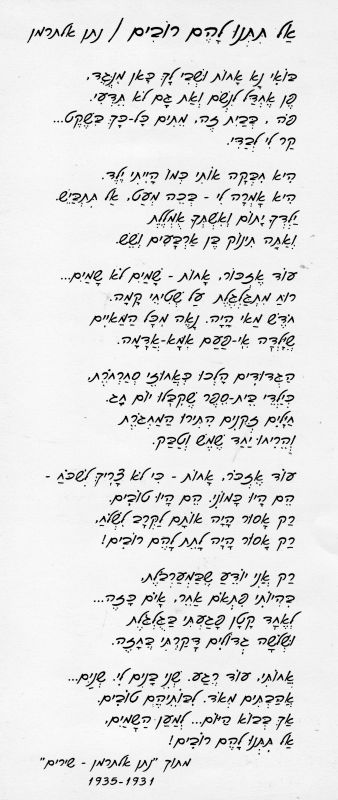 אַל תִּתְּנוּ לָהֶם רוֹבִים / נתן אלתרמן
בּוֹאִי נָא אָחוֹת וּשְׁבִי לָךְ כָּאן מִנֶּגֶד,
פֶּן אֶחְדַּל לִנְשֹׁם וְאַתְּ גַם לֹא תֵּדְעִי.
פֹּה, בְּבַיִת זֶה, מֵתִים כָּל-כָּךְ בְּשֶׁקֶט...
קַר לִי לְבַדִּי.
הִיא חִבְּקָה אוֹתִי כְּמוֹ הָיִיתִי יֶלֶד.
הִיא אָמְרָה לִי - בְּכֵה מְעַט, אַל תִּתְבַּיֵּשׁ.
יַלְדְּךָ יָתוֹם וְאִשְׁתְּךָ אֻמְלֶלֶת
וְאַתָּה תִּינוֹק בֶּן אַרְבָּעִים וָשֵׁשׁ.
עוֹד אֶזְכּוֹר, אָחוֹת - שָׁמַיִם לֹא שָׁמַיִם...
רוּחַ מִתְגַּלְגֶּלֶת עַל שְׁטִיחֵי קָמָה.
חֹדֶשׁ מַאי הָיָה. נָאֶה מִכָּל הַמַּאיִים
שֶׁיָּלְדָה אֵי-פַּעַם אִמָּא-אֲדָמָה.
הַגְּדוּדִים הָלְכוּ כַּאֲחוּזֵי סְחַרְחֹרֶת,
כְּיַלְדֵי בֵּית-סֵפֶר שֶׁקִּבְּלוּ יוֹם חַג.
חַיָּלִים זְקֵנִים הִתִּירוּ הַמַּחְגֹּרֶת
וְהֵרִיחוּ יַחַד שֶׁמֶשׁ וְטַבָּק.
עוֹד אֶזְכֹּר, אָחוֹת - כִּי לֹא צָרִיךְ לִשְׁכֹּחַ -
הֵם הָיוּ כָּמוֹנִי. הֵם הָיוּ טוֹבִים.
רַק אָסוּר הָיָה אוֹתָם לַקְּרָב לִשְׁלֹחַ,
רַק אָסוּר הָיָה לָתֵת לָהֶם רוֹבִים!
רַק אֲנִי יוֹדֵעַ שֶׁבַּמַּעַרְבֹּלֶת,
בִּהְיוֹתִי פִּתְאֹם אַחֵר, אָיֹם כָּזֶה...
לְאֶחָד קָטָן פָּגַעְתִּי בַּגֻּלְגֹּלֶת
וּשְׁלֹשָׁה גְדוֹלִים דָּקַרְתִּי בֶּחָזֶה.
אֲחוֹתִי, עוֹד רֶגַע. שְׁנֵי בָּנִים לִי. שְׁנַיִם...
אֲהַבְתִּים מְאֹד. לִבּוֹתֵיהֶם טוֹבִים.
אַךְ בְּבוֹא הַיּוֹם... לְמַעַן הַשָּׁמַיִם,
אַל תִּתְּנוּ לָהֶם רוֹבִים!
מתוך "נתן אלתרמן - שירים"
1935-1931